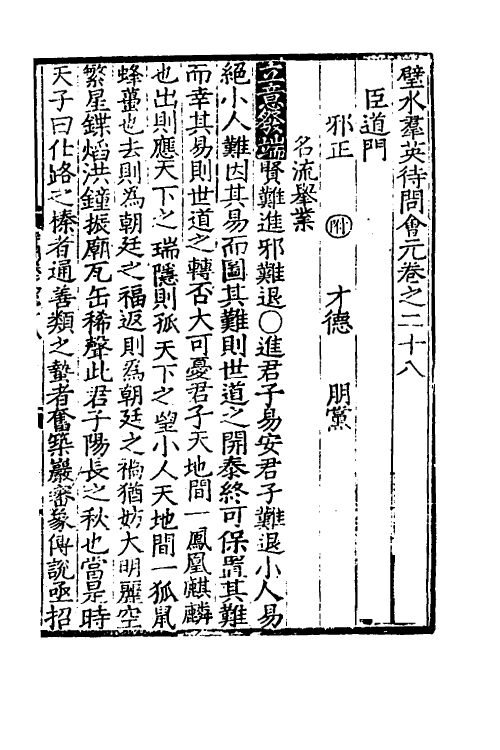 璧水羣英待問會元卷之二十八
臣道門
邪正 附 才德 朋黨
名流舉業
立意發端 賢難進邪難退○進君子易安君子難退小人易
絕小人難因其易而圖其難則世道之開泰終可保置其難
而幸其易則世道之轉否大可憂君子天地間一鳳凰麒麟
也出則應天下之瑞隱則孤天下之望小人天地間一狐鼠
蜂蠆也去則為朝廷之福返則為朝廷之禍猶妨大明麗空
繁星鍱焰洪鐘振廟瓦缶稀聲此君子陽長之秋也當是時
天子曰仕路之榛者通善類之蟄者奮築巖審象傅說亟招